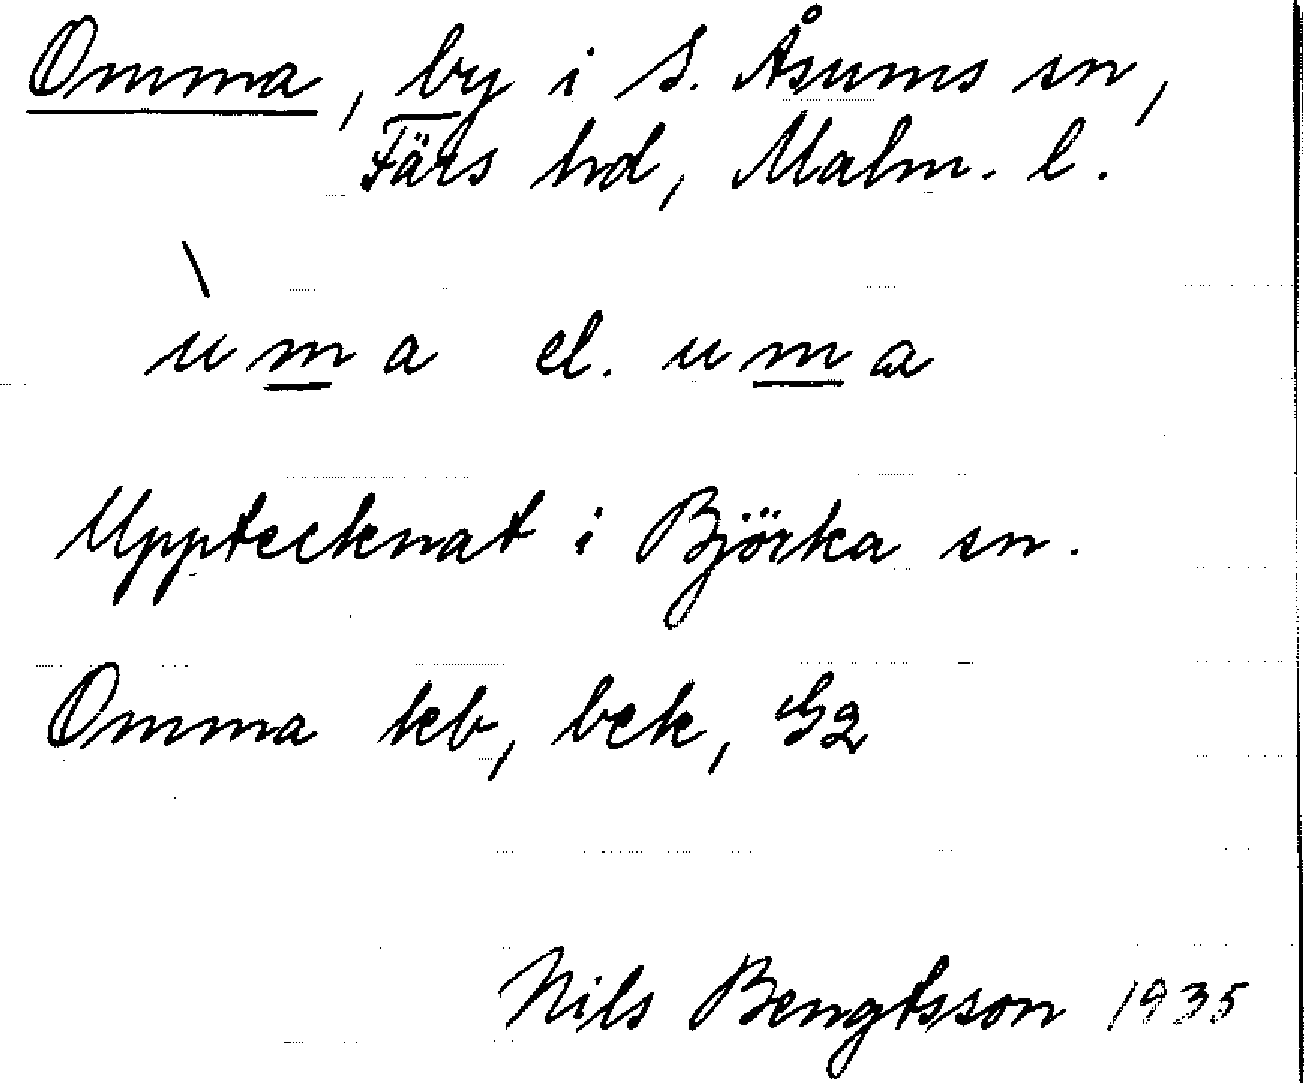 Omma, by i S. Åsums sn,
Färs hd, Malm. l.
uma el. uma
Upptecknat i Björka sn.
Omma kb, bek, G2
Nils Bengtsson 1935